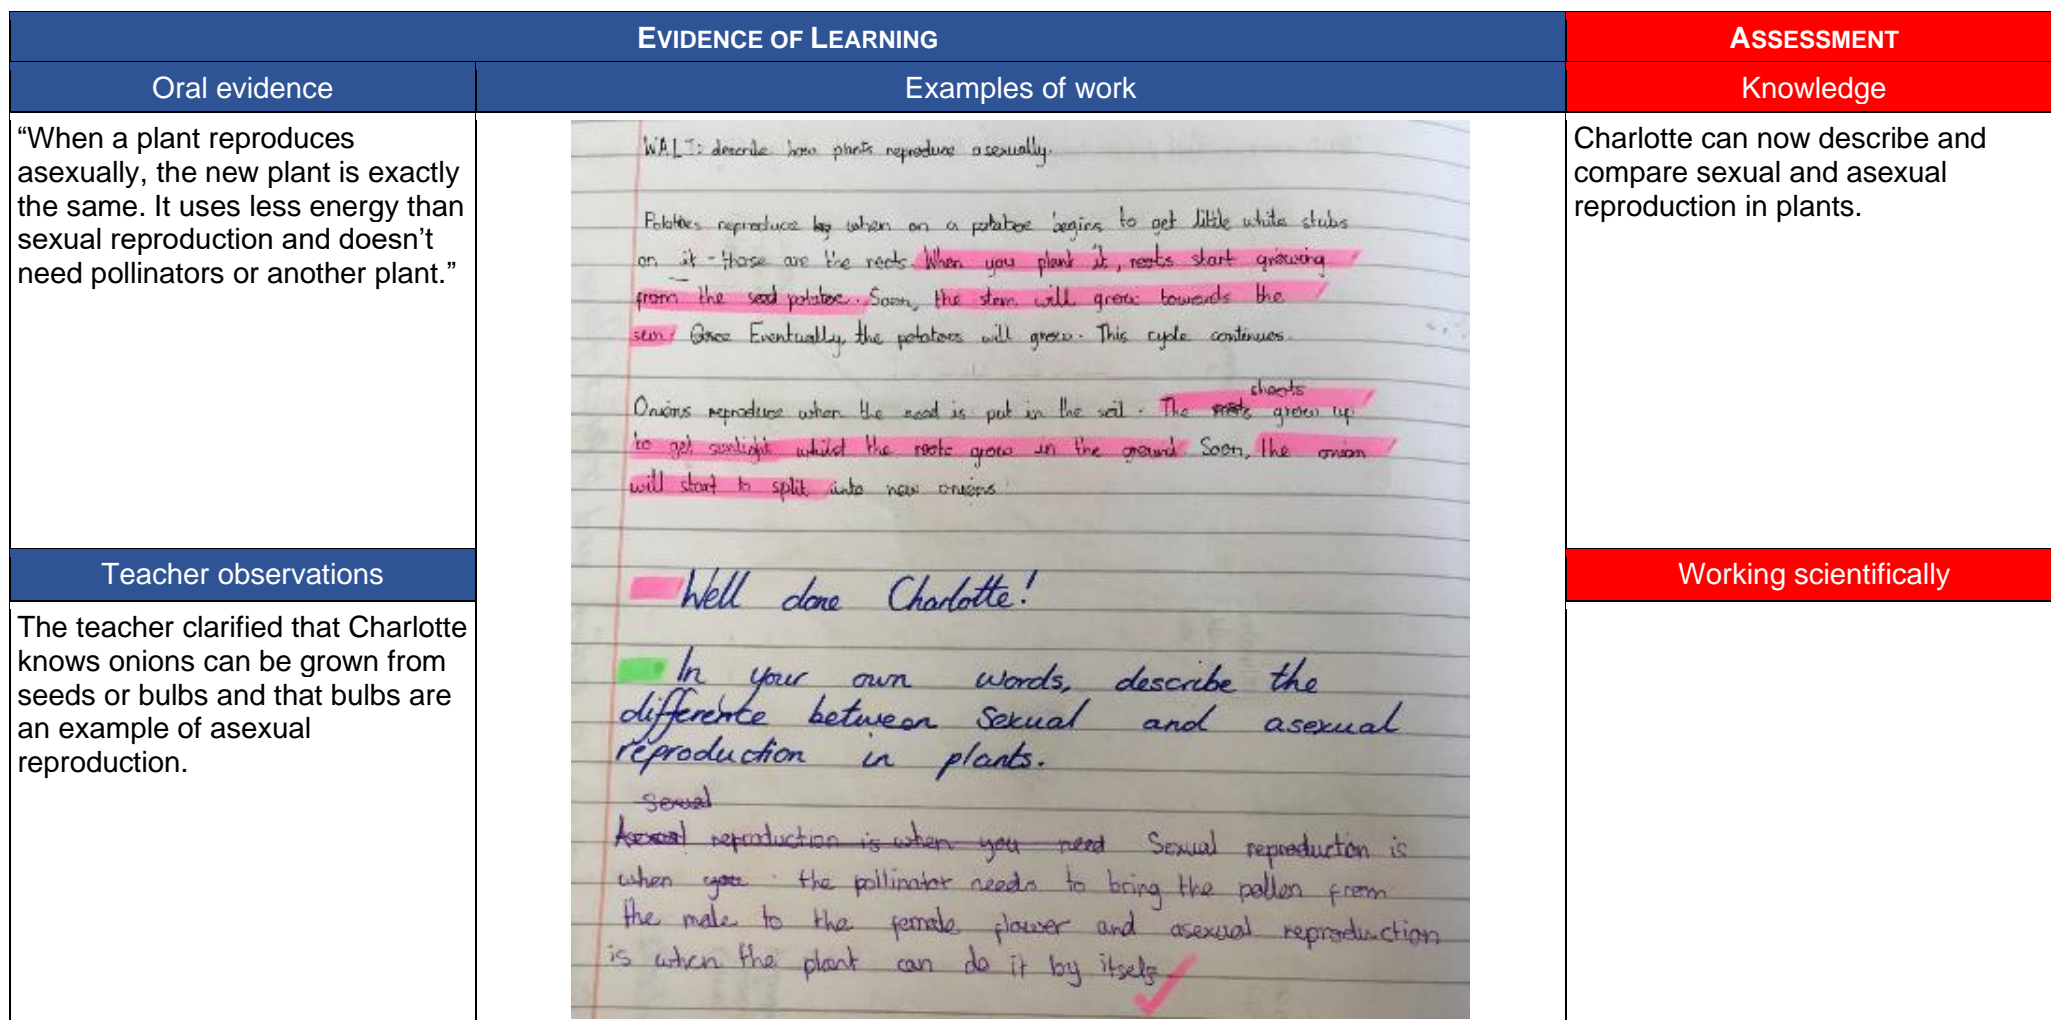 EVIDENCE OF LEARNING
ASSESSMENT
Oral evidence
Examples of work
Knowledge
“When a plant reproduces
asexually, the new plant is exactly
the same. It uses less energy than
sexual reproduction and doesn’t
need pollinators or another plant.”
Teacher observations
The teacher clarified that Charlotte
knows onions can be grown from
seeds or bulbs and that bulbs are
an example of asexual
reproduction.
WALT: describe how plants reproduce asexually.
Potatoes reproduce by when on a potatoe begins to get little white stubs
on it - those are the roots. When you plant it, roots start growing
from the seed potatoe. Soon, the stem will grow towards the
sun. Once Eventually, the potatoes will grow. This cycle continues.
shoots
Onions reproduce when the seed is put in the soil. The roots grow up
to get sunlight whilst the roots grow in the ground. Soon, the onion
will start to split into new onions.
Well done Charlotte!
In your own words, describe the
difference between sexual and asexual
reproduction in plants.
sexual
Asexual reproduction is when you need Sexual reproducton is
when you the pollinator needs to bring the pollen from
the male to the female flower and asexual reproduction
is when the plant can do it by itself
Charlotte can now describe and
compare sexual and asexual
reproduction in plants.
Working scientifically